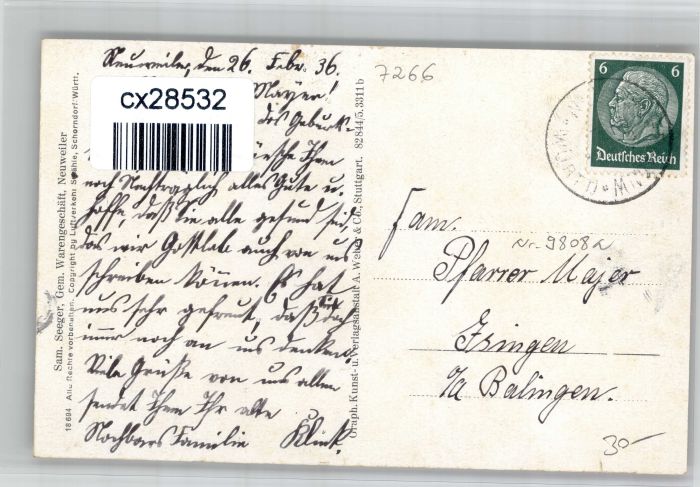 Neuweiler, den 26. Febr. 36.
Mayer!
cx28532
des Geburts-
Ihnen
noch Nachträglich alles Gute u.
hoffe, daß Sie alle gesund sind,
das wir Gottlob auch von uns
schreiben können. Es hat
uns sehr gefreut, daß Sie doch
immer noch an uns denken.
Viele Grüße von uns allen
sendet Ihnen Ihr alte
Nachbars Familie Klink.
Sam. Seeger, Gem. Warengeschäft, Neuweiler
18694 Alle Rechte vorbehalten. Copyright by Luftverkehr Strähle, Schorndorf Württ.
Graph. Kunst- u. Verlagsanstalt A. Weber & Co., Stuttgart. 82844/5.3311b
7266
6 6
Deutsches Reich
Fam.
Nr. 9808a
Pfarrer Majer
Isingen
b/a Balingen.
30-